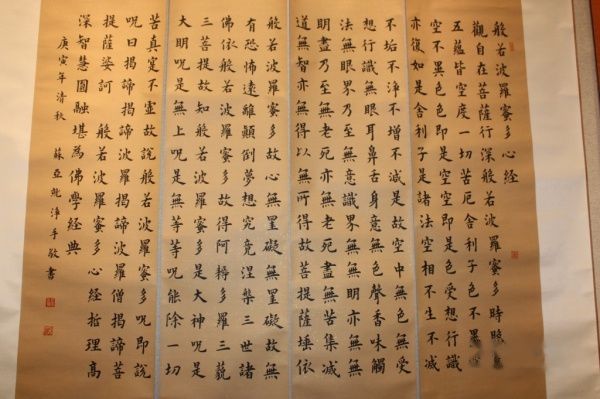 般若波羅蜜多心經
觀自在菩薩行深般若波羅蜜多時照見
五蘊皆空度一切苦厄舍利子色不異
空不異色色即是空空即是色受想行識
亦復如是舍利子是諸法空相不生不滅
不垢不淨不增不減是故空中無色無受
想行識無眼耳鼻舌身意無色聲香味觸
法無眼界乃至無意識界無無明亦無無
明盡乃至無老死亦無老死盡無苦集滅
道無智亦無得以無所得故菩提薩埵依
般若波羅蜜多故心無罣礙無罣礙故無
有恐怖遠離顛倒夢想究竟涅槃三世諸
佛依般若波羅蜜多故得阿耨多羅三藐
三菩提故知般若波羅蜜多是大神呪是
大明呪是無上呪是無等等呪能除一切
苦真寔不虛故說般若波羅蜜多呪即說
呪曰揭諦揭諦波羅揭諦波羅僧揭諦菩
提薩婆訶 般若波羅蜜多心經哲理高
深智慧圓融堪為佛學經典
庚寅年清秋 蘇亞 淨手敬書